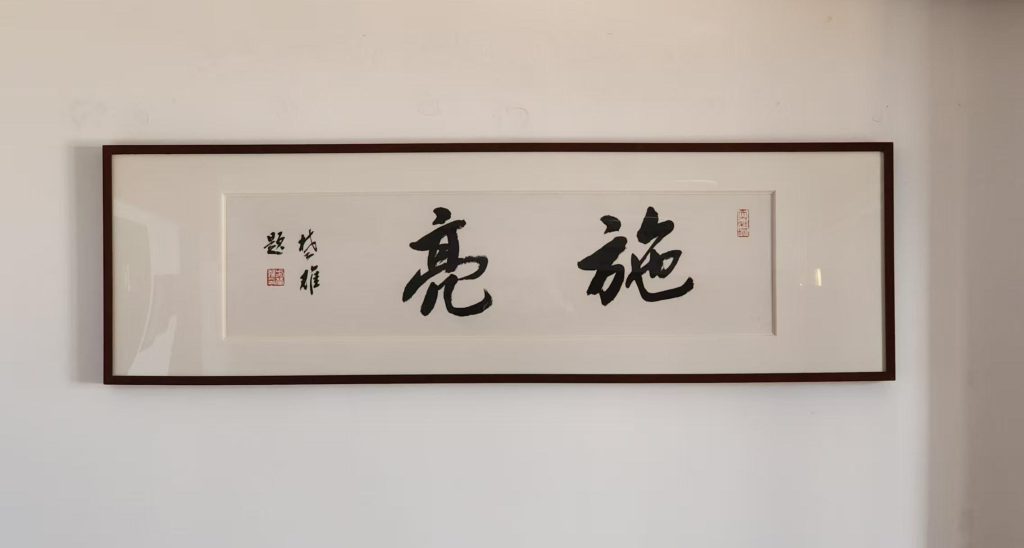 施亮
楚雄
题